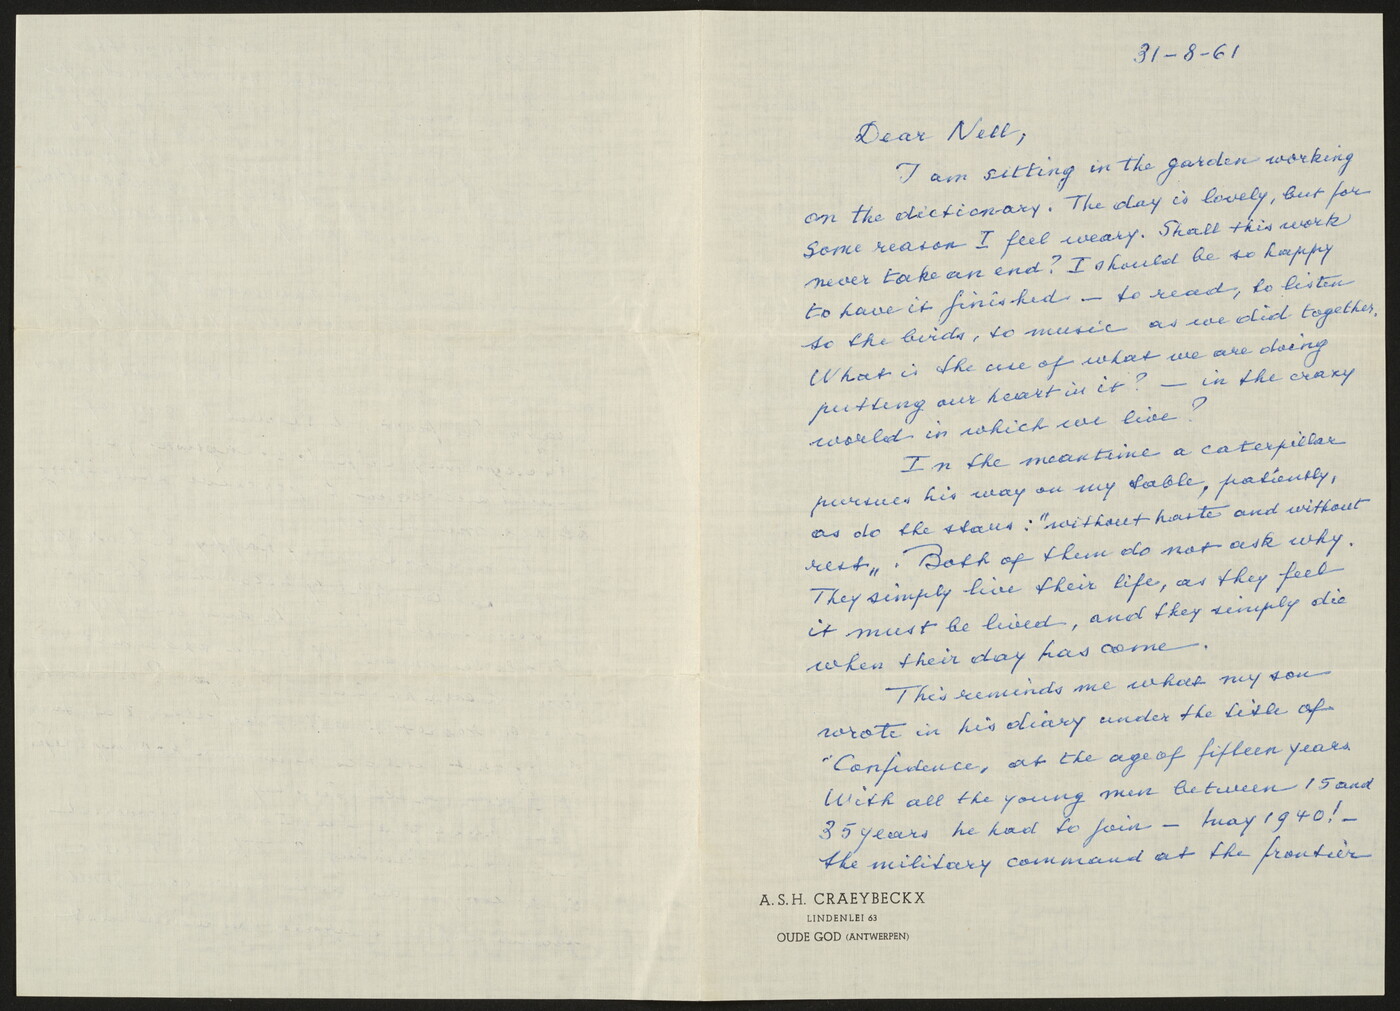 31-8-61
Dear Nell,
I am sitting in the garden working
on the dictionary. The day is lovely, but for
some reason I feel weary. Shall this work
never take an end? I should be so happy
to have it finished - to read, to listen
to the birds, to music as we did together.
What is the use of what we are doing
putting our heart in it? - in the crazy
world in which we live?
In the meantime a caterpillar
pursues his way on my table, patiently,
as do the stars: "without haste and without
rest„. Both of them do not ask why.
They simply live their life, as they feel
it must be lived, and they simply die
when their day has come.
This reminds me what my son
wrote in his diary under the title of
"Confidence, at the age of fifteen years
With all the young men between 15 and
35 years he had to join - May 1940! -
the military command at the frontier
A.S.H. CRAEYBECKX
LINDENLEI 63
OUDE GOD (ANTWERPEN)